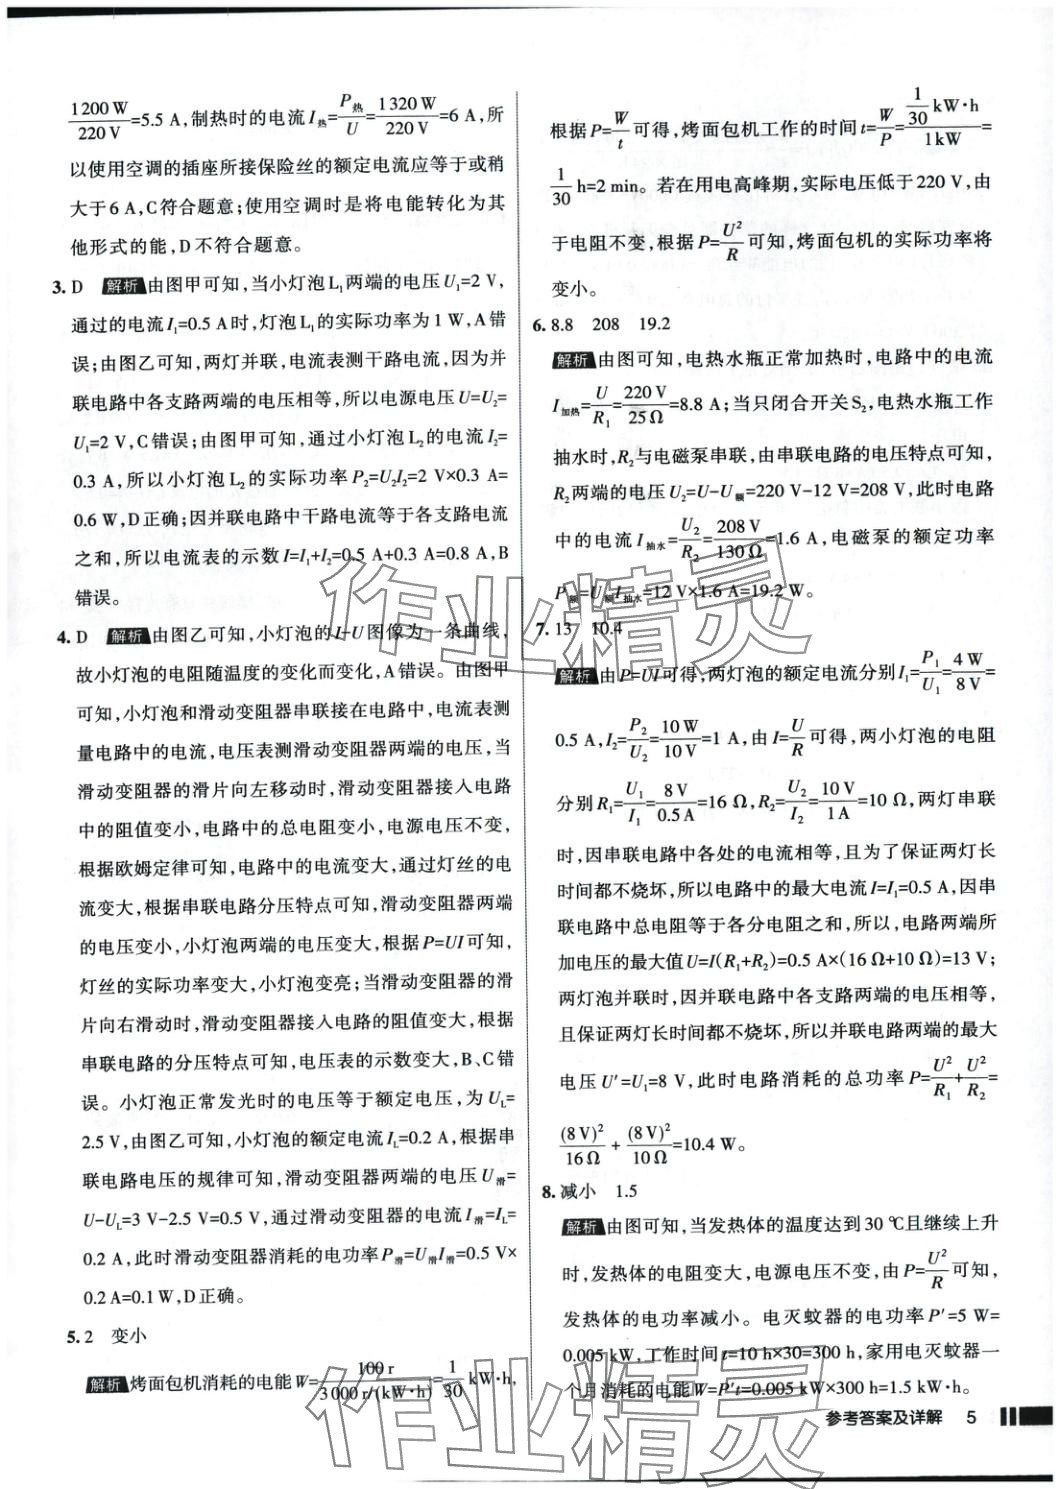 1200 W/220 V=5.5 A,制热时的电流I热=P热/U=1320 W/220 V=6 A,所
以使用空调的插座所接保险丝的额定电流应等于或稍
大于6 A,C符合题意;使用空调时是将电能转化为其
他形式的能,D不符合题意。
3. D 解析 由图甲可知,当小灯泡L₁两端的电压U₁=2 V,
通过的电流I₁=0.5 A时,灯泡L₁的实际功率为1 W,A错
误;由图乙可知,两灯并联,电流表测干路电流,因为并
联电路中各支路两端的电压相等,所以电源电压U=U₂=
U₁=2 V,C错误;由图甲可知,通过小灯泡L₂的电流I₂=
0.3 A,所以小灯泡L₂的实际功率P₂=U₂I₂=2 V×0.3 A=
0.6 W,D正确;因并联电路中干路电流等于各支路电流
之和,所以电流表的示数I=I₁+I₂=0.5 A+0.3 A=0.8 A,B
错误。
4. D 解析 由图乙可知,小灯泡的I-U图像为一条曲线,
故小灯泡的电阻随温度的变化而变化,A错误。由图甲
可知,小灯泡和滑动变阻器串联接在电路中,电流表测
量电路中的电流,电压表测滑动变阻器两端的电压,当
滑动变阻器的滑片向左移动时,滑动变阻器接入电路
中的阻值变小,电路中的总电阻变小,电源电压不变,
根据欧姆定律可知,电路中的电流变大,通过灯丝的电
流变大,根据串联电路分压特点可知,滑动变阻器两端
的电压变小,小灯泡两端的电压变大,根据P=UI可知,
灯丝的实际功率变大,小灯泡变亮;当滑动变阻器的滑
片向右滑动时,滑动变阻器接入电路的阻值变大,根据
串联电路的分压特点可知,电压表的示数变大,B、C错
误。小灯泡正常发光时的电压等于额定电压,为U_L=
2.5 V,由图乙可知,小灯泡的额定电流I_L=0.2 A,根据串
联电路电压的规律可知,滑动变阻器两端的电压U滑=
U-U_L=3 V-2.5 V=0.5 V,通过滑动变阻器的电流I滑=I_L=
0.2 A,此时滑动变阻器消耗的电功率P滑=U滑I滑=0.5 V×
0.2 A=0.1 W,D正确。
5. 2 变小
解析 烤面包机消耗的电能W=100 r/3000 r/(kW·h)=1/30 kW·h,
根据P=W/t可得,烤面包机工作的时间t=W/P=1/30 kW·h/1kW=
1/30 h=2 min。若在用电高峰期,实际电压低于220 V,由
于电阻不变,根据P=U²/R可知,烤面包机的实际功率将
变小。
6. 8.8 208 19.2
解析 由图可知,电热水瓶正常加热时,电路中的电流
I加热=U/R₁=220 V/25 Ω=8.8 A;当只闭合开关S₂,电热水瓶工作
抽水时,R₂与电磁泵串联,由串联电路的电压特点可知,
R₂两端的电压U₂=U-U额=220 V-12 V=208 V,此时电路
中的电流I抽水=U₂/R₂=208 V/130 Ω=1.6 A,电磁泵的额定功率
P额=U额I抽水=12 V×1.6 A=19.2 W。
7. 13 10.4
解析 由P=UI可得,两灯泡的额定电流分别I₁=P₁/U₁=4 W/8 V=
0.5 A,I₂=P₂/U₂=10 W/10 V=1 A,由I=U/R可得,两小灯泡的电阻
分别R₁=U₁/I₁=8 V/0.5 A=16 Ω,R₂=U₂/I₂=10 V/1 A=10 Ω,两灯串联
时,因串联电路中各处的电流相等,且为了保证两灯长
时间都不烧坏,所以电路中的最大电流I=I₁=0.5 A,因串
联电路中总电阻等于各分电阻之和,所以,电路两端所
加电压的最大值U=I(R₁+R₂)=0.5 A×(16 Ω+10 Ω)=13 V;
两灯泡并联时,因并联电路中各支路两端的电压相等,
且保证两灯长时间都不烧坏,所以并联电路两端的最大
电压U′=U₁=8 V,此时电路消耗的总功率P=U²/R₁+U²/R₂=
(8 V)²/16 Ω+(8 V)²/10 Ω=10.4 W。
8. 减小 1.5
解析 由图可知,当发热体的温度达到30 ℃且继续上升
时,发热体的电阻变大,电源电压不变,由P=U²/R可知,
发热体的电功率减小。电灭蚊器的电功率P′=5 W=
0.005 kW,工作时间t=10 h×30=300 h,家用电灭蚊器一
个月消耗的电能W=P′t=0.005 kW×300 h=1.5 kW·h。
参考答案及详解 5
作业精灵
作业精灵